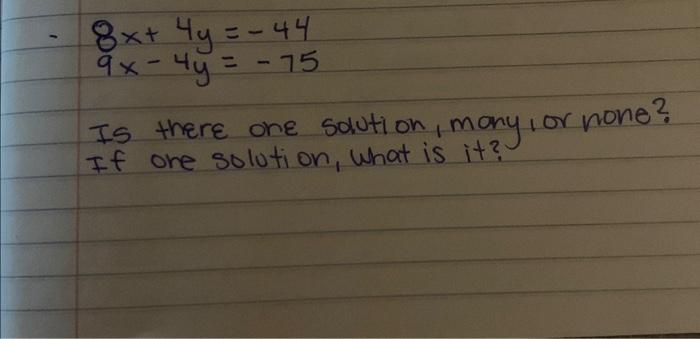 - 8x+ 4y = - 44
9x - 4y = - 75
Is there one solution, many, or none?
If one solution, what is it?